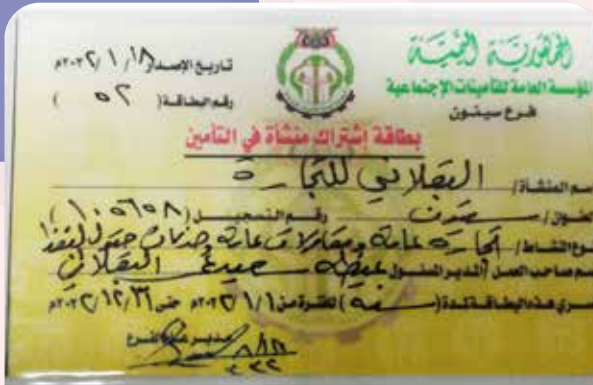 الجمهورية اليمنية
المؤسسة العامة للتأمينات الإجتماعية
فرع سيئون
تاريخ الإصدار ١٨/ ١/ ٢٠٢٢م
رقم البطاقة( ٥٢ )
بطاقة إشتراك منشأة في التأمين
اسم المنشأة/ البقلاني للتجارة
العنوان/ سيئون رقم التسجيل (١٠٥٦٥٨)
نوع النشاط/ تجارة عامة ومقاولات عامة وخدمات حقول النفط
اسم صاحب العمل /المدير المسئول سعيد البقلاني
تسري هذه البطاقة لمدة( سنة ) للفترة من ١/١/ ٢٠٢٢م حتى ٣١/ ١٢/ ٢٠٢٢م
مدير عام الفرع